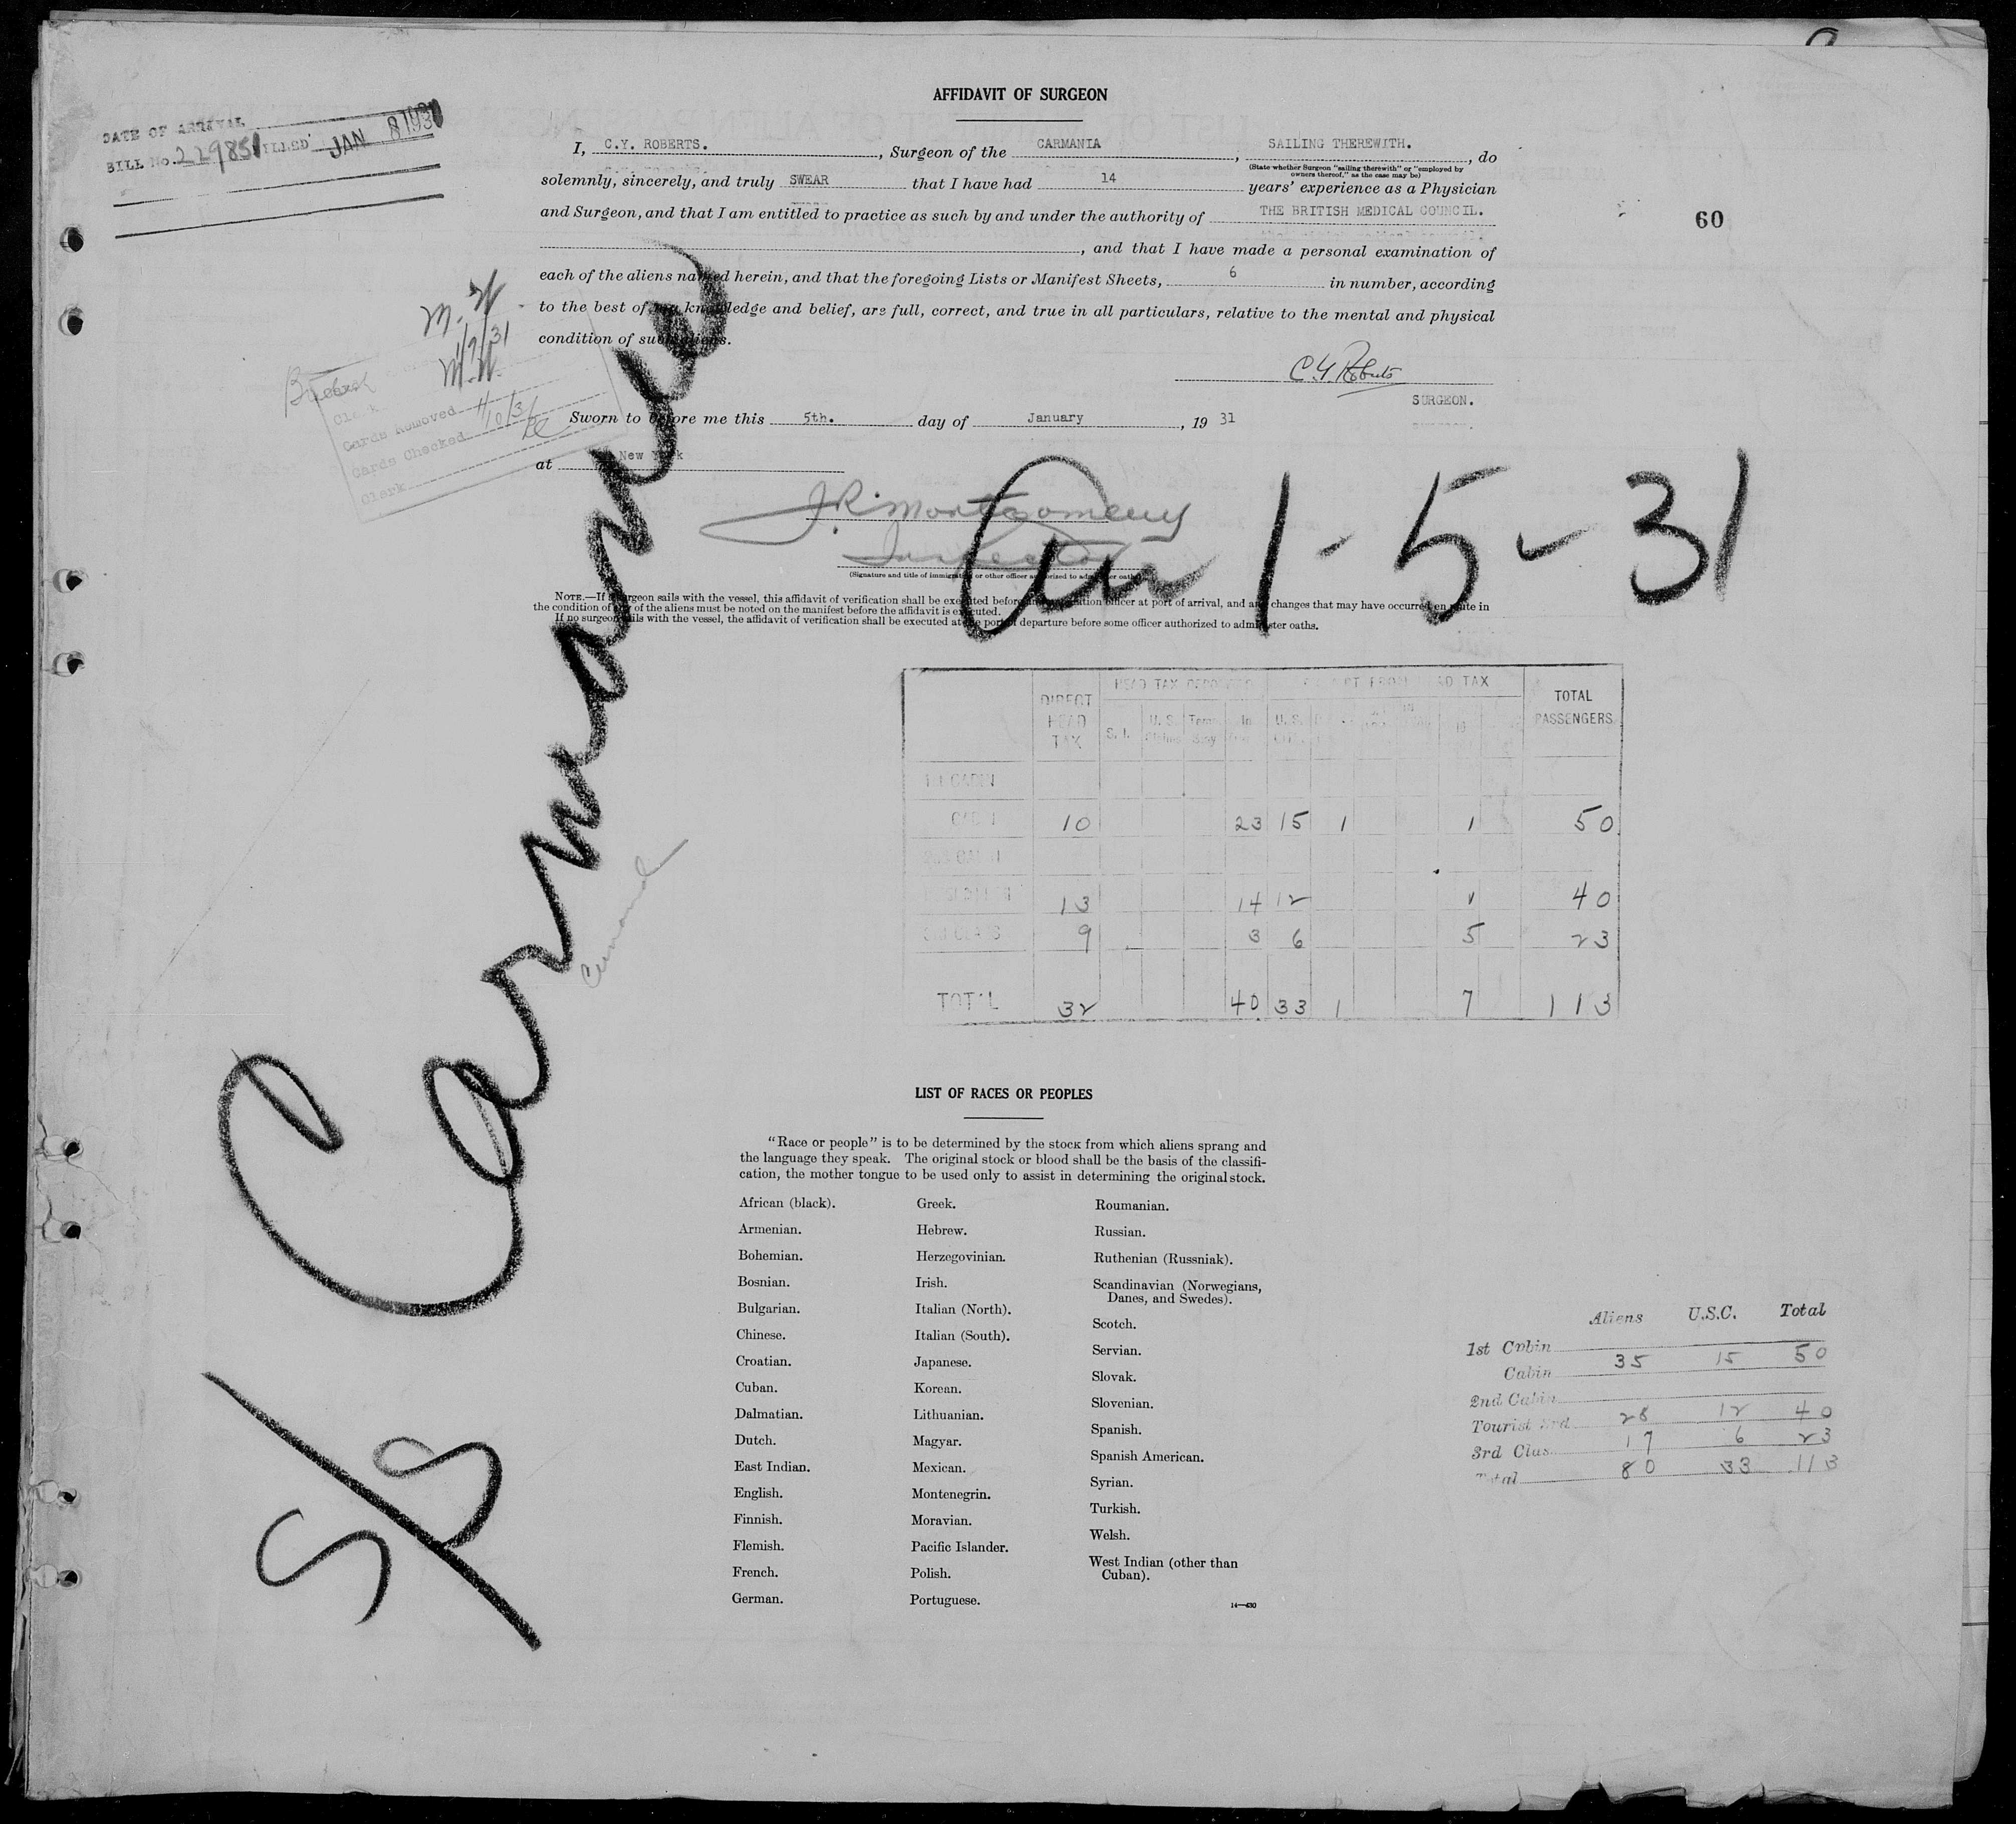 AFFIDAVIT OF SURGEON
DATE OF ARRIVAL
BILL No. 229851 JAN 8 1931
I, C.Y. ROBERTS., Surgeon of the CARMANIA, SAILING THEREWITH., do
(State whether Surgeon "sailing therewith" or "employed by
owners thereof," as the case may be)
solemnly, sincerely, and truly SWEAR that I have had 14 years' experience as a Physician
and Surgeon, and that I am entitled to practice as such by and under the authority of THE BRITISH MEDICAL COUNCIL.
60
, and that I have made a personal examination of
each of the aliens named herein, and that the foregoing Lists or Manifest Sheets, 6 in number, according
to the best of my knowledge and belief, are full, correct, and true in all particulars, relative to the mental and physical
condition of such aliens.
M.W.
1/9/31
M.W.
Clerk
Cards Removed
Cards Checked 1/10/31
Clerk
C Y Roberts
SURGEON.
Sworn to before me this 5th. day of January, 19 31
at New York
J.R. Montgomery
Inspector
(Signature and title of immigration or other officer authorized to administer oaths)
Arr 1-5-31
NOTE.—If a surgeon sails with the vessel, this affidavit of verification shall be executed before an immigration officer at port of arrival, and any changes that may have occurred en route in
the condition of any of the aliens must be noted on the manifest before the affidavit is executed.
If no surgeon sails with the vessel, the affidavit of verification shall be executed at the port of departure before some officer authorized to administer oaths.
S/S Carmania
Cunard
DIRECT HEAD TAX HEAD TAX EXEMPT FROM HEAD TAX TOTAL PASSENGERS
S. I. U. S. Temp. Stay In U. S.
CABIN 10 23 15 1 1 50
2nd CABIN
13 14 12 1 40
3rd CLASS 9 3 6 5 23
TOTAL 32 40 33 1 7 113
LIST OF RACES OR PEOPLES
"Race or people" is to be determined by the stock from which aliens sprang and
the language they speak. The original stock or blood shall be the basis of the classifi-
cation, the mother tongue to be used only to assist in determining the original stock.
African (black).
Armenian.
Bohemian.
Bosnian.
Bulgarian.
Chinese.
Croatian.
Cuban.
Dalmatian.
Dutch.
East Indian.
English.
Finnish.
Flemish.
French.
German.
Greek.
Hebrew.
Herzegovinian.
Irish.
Italian (North).
Italian (South).
Japanese.
Korean.
Lithuanian.
Magyar.
Mexican.
Montenegrin.
Moravian.
Pacific Islander.
Polish.
Portuguese.
Roumanian.
Russian.
Ruthenian (Russniak).
Scandinavian (Norwegians,
Danes, and Swedes).
Scotch.
Servian.
Slovak.
Slovenian.
Spanish.
Spanish American.
Syrian.
Turkish.
Welsh.
West Indian (other than
Cuban).
14—430
Aliens U.S.C. Total
1st Cabin
Cabin 35 15 50
2nd Cabin
Tourist 3rd 28 12 40
3rd Class 17 6 23
Total 80 33 113